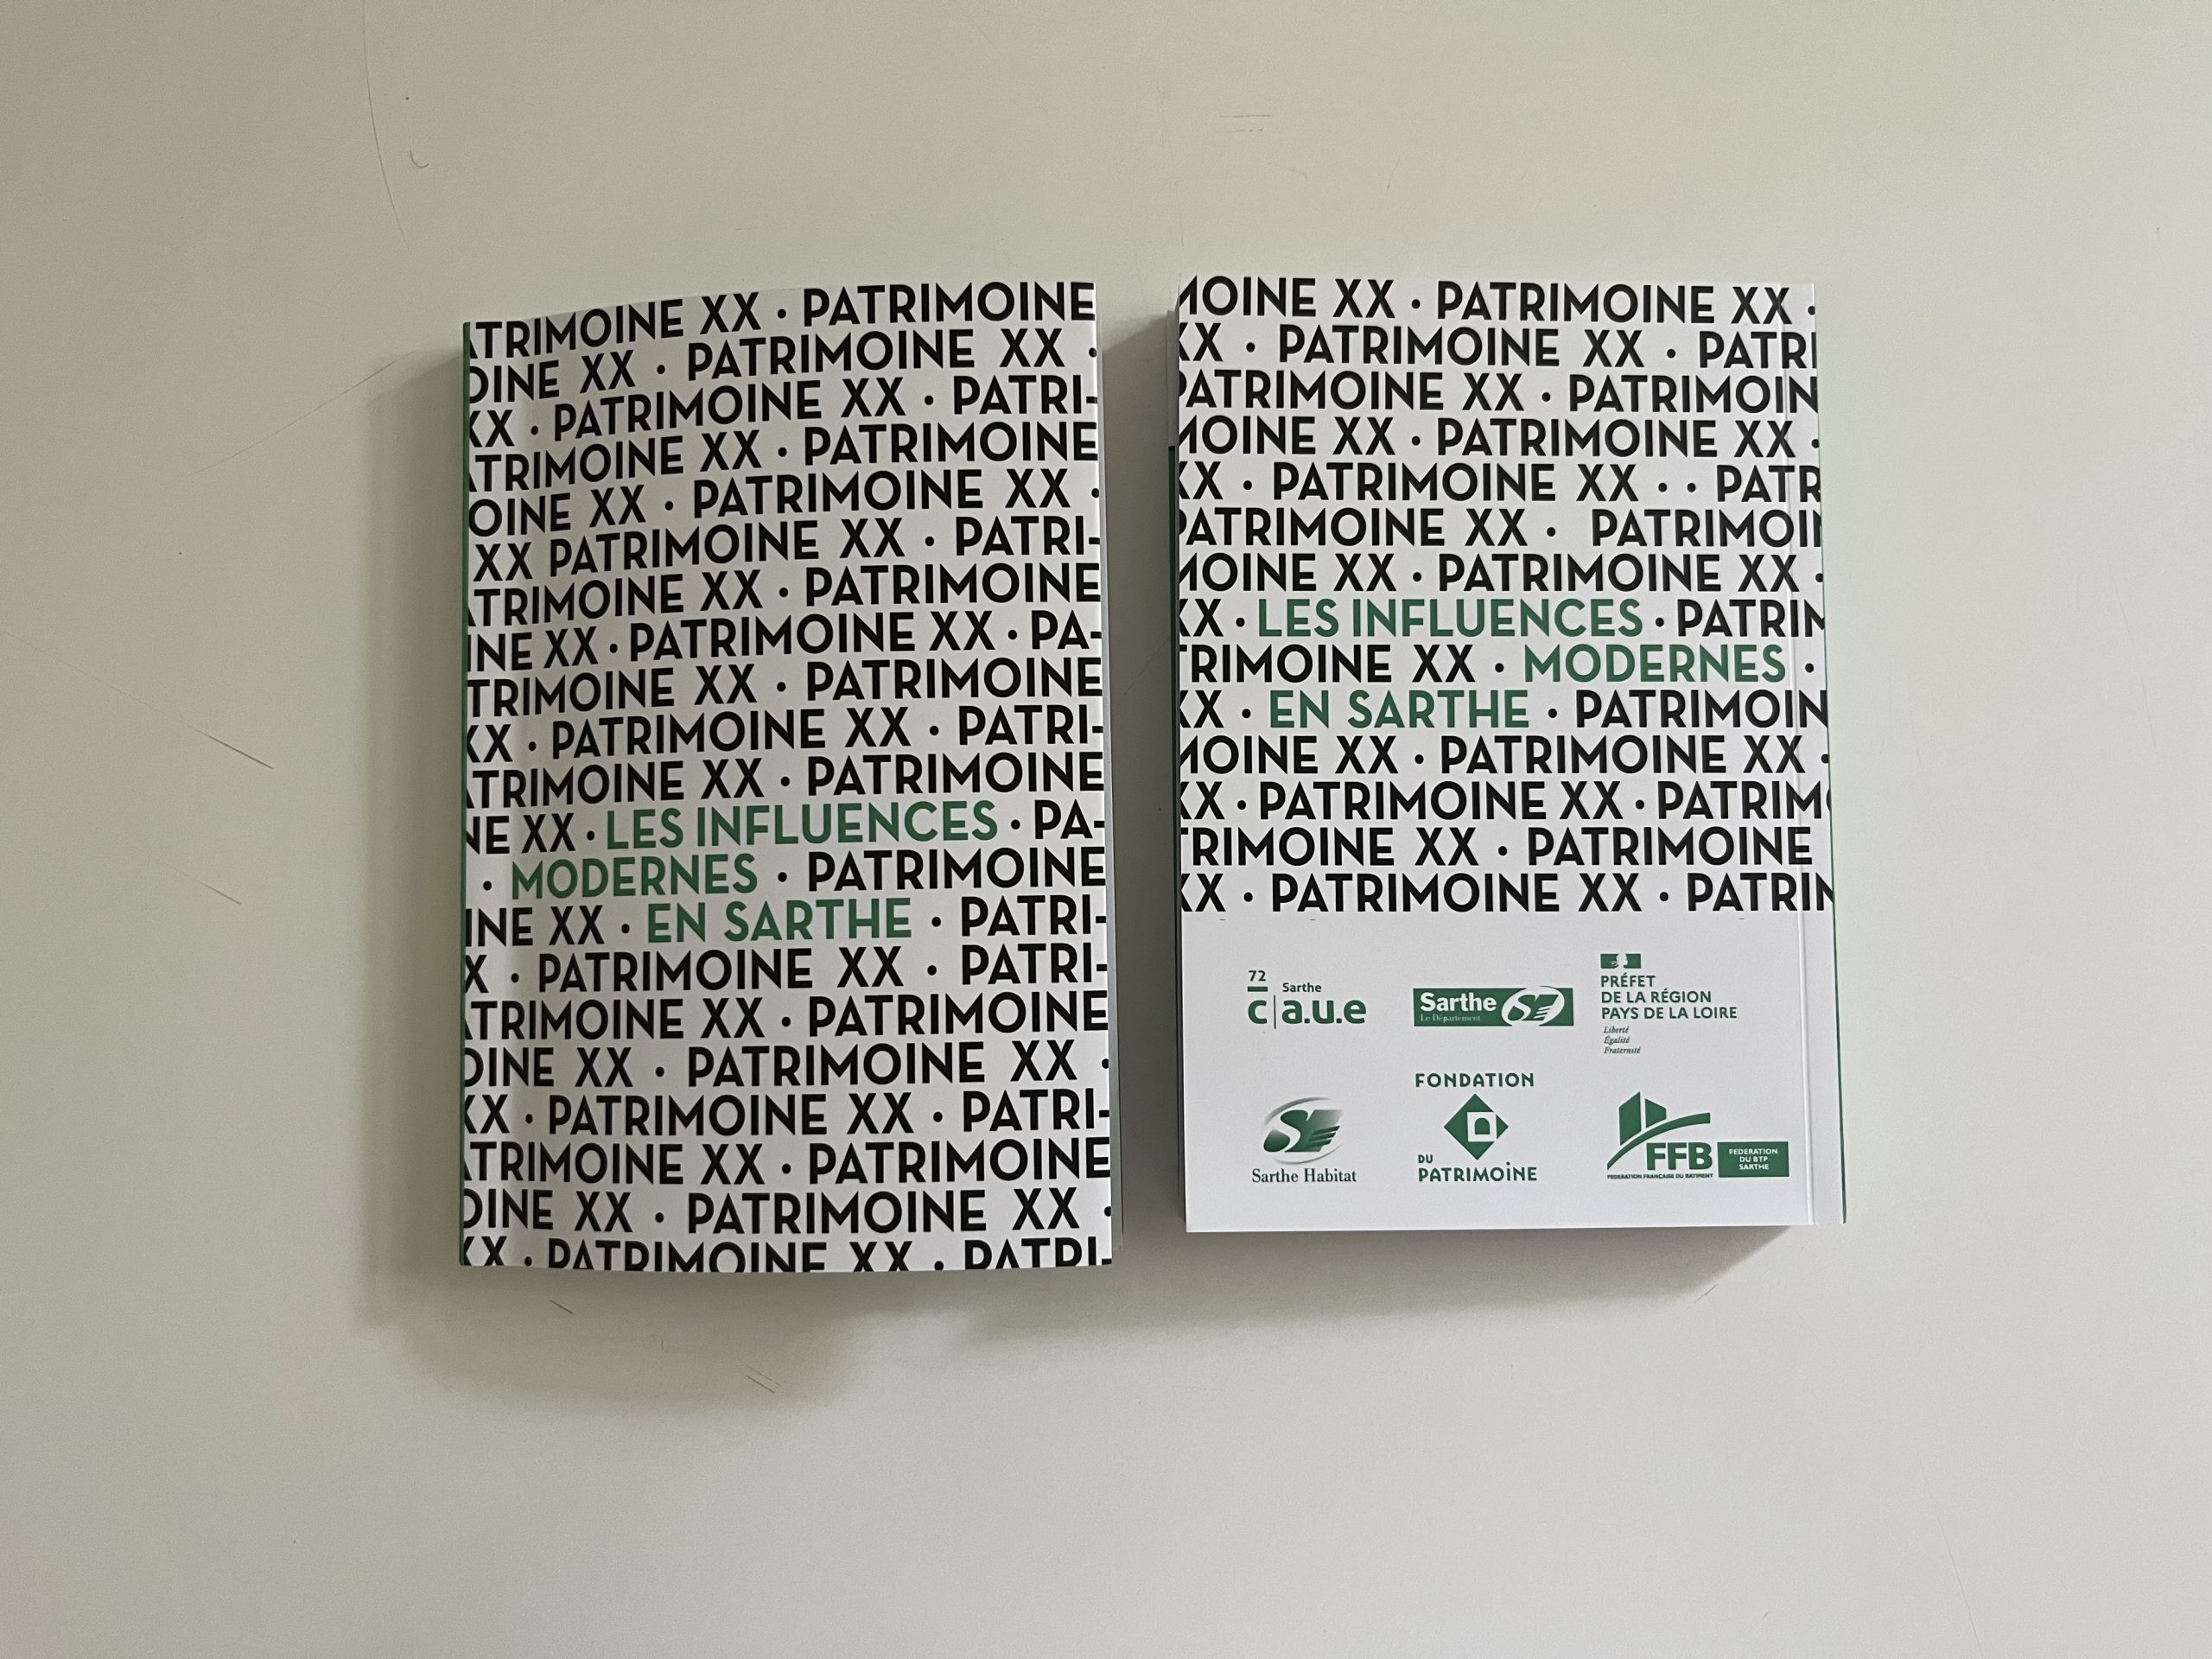 ATRIMOINE XX · PATRIMOINE
OINE XX · PATRIMOINE XX ·
XX · PATRIMOINE XX · PATRI-
ATRIMOINE XX · PATRIMOINE
OINE XX · PATRIMOINE XX ·
XX PATRIMOINE XX · PATRI-
ATRIMOINE XX · PATRIMOINE
INE XX · PATRIMOINE XX · PA-
TRIMOINE XX · PATRIMOINE
XX · PATRIMOINE XX · PATRI-
ATRIMOINE XX · PATRIMOINE
NE XX · LES INFLUENCES · PA-
· MODERNES · PATRIMOINE
INE XX · EN SARTHE · PATRI-
X · PATRIMOINE XX · PATRI-
ATRIMOINE XX · PATRIMOINE
OINE XX · PATRIMOINE XX ·
XX · PATRIMOINE XX · PATRI-
ATRIMOINE XX · PATRIMOINE
OINE XX · PATRIMOINE XX ·
XX · PATRIMOINE XX · PATRI-
MOINE XX · PATRIMOINE XX ·
XX · PATRIMOINE XX · PATRI
PATRIMOINE XX · PATRIMOIN
MOINE XX · PATRIMOINE XX ·
XX · PATRIMOINE XX · · PATR
PATRIMOINE XX · PATRIMOIN
MOINE XX · PATRIMOINE XX ·
XX · LES INFLUENCES · PATRIM
TRIMOINE XX · MODERNES ·
XX · EN SARTHE · PATRIMOIN
MOINE XX · PATRIMOINE XX ·
XX · PATRIMOINE XX · PATRIMO
TRIMOINE XX · PATRIMOINE
XX · PATRIMOINE XX · PATRIM
72
Sarthe
c|a.u.e
Sarthe
Le Département
PRÉFET
DE LA RÉGION
PAYS DE LA LOIRE
Liberté
Égalité
Fraternité
Sarthe Habitat
FONDATION
DU
PATRIMOINE
FFB
FEDERATION FRANÇAISE DU BATIMENT
FEDERATION
DU BTP
SARTHE